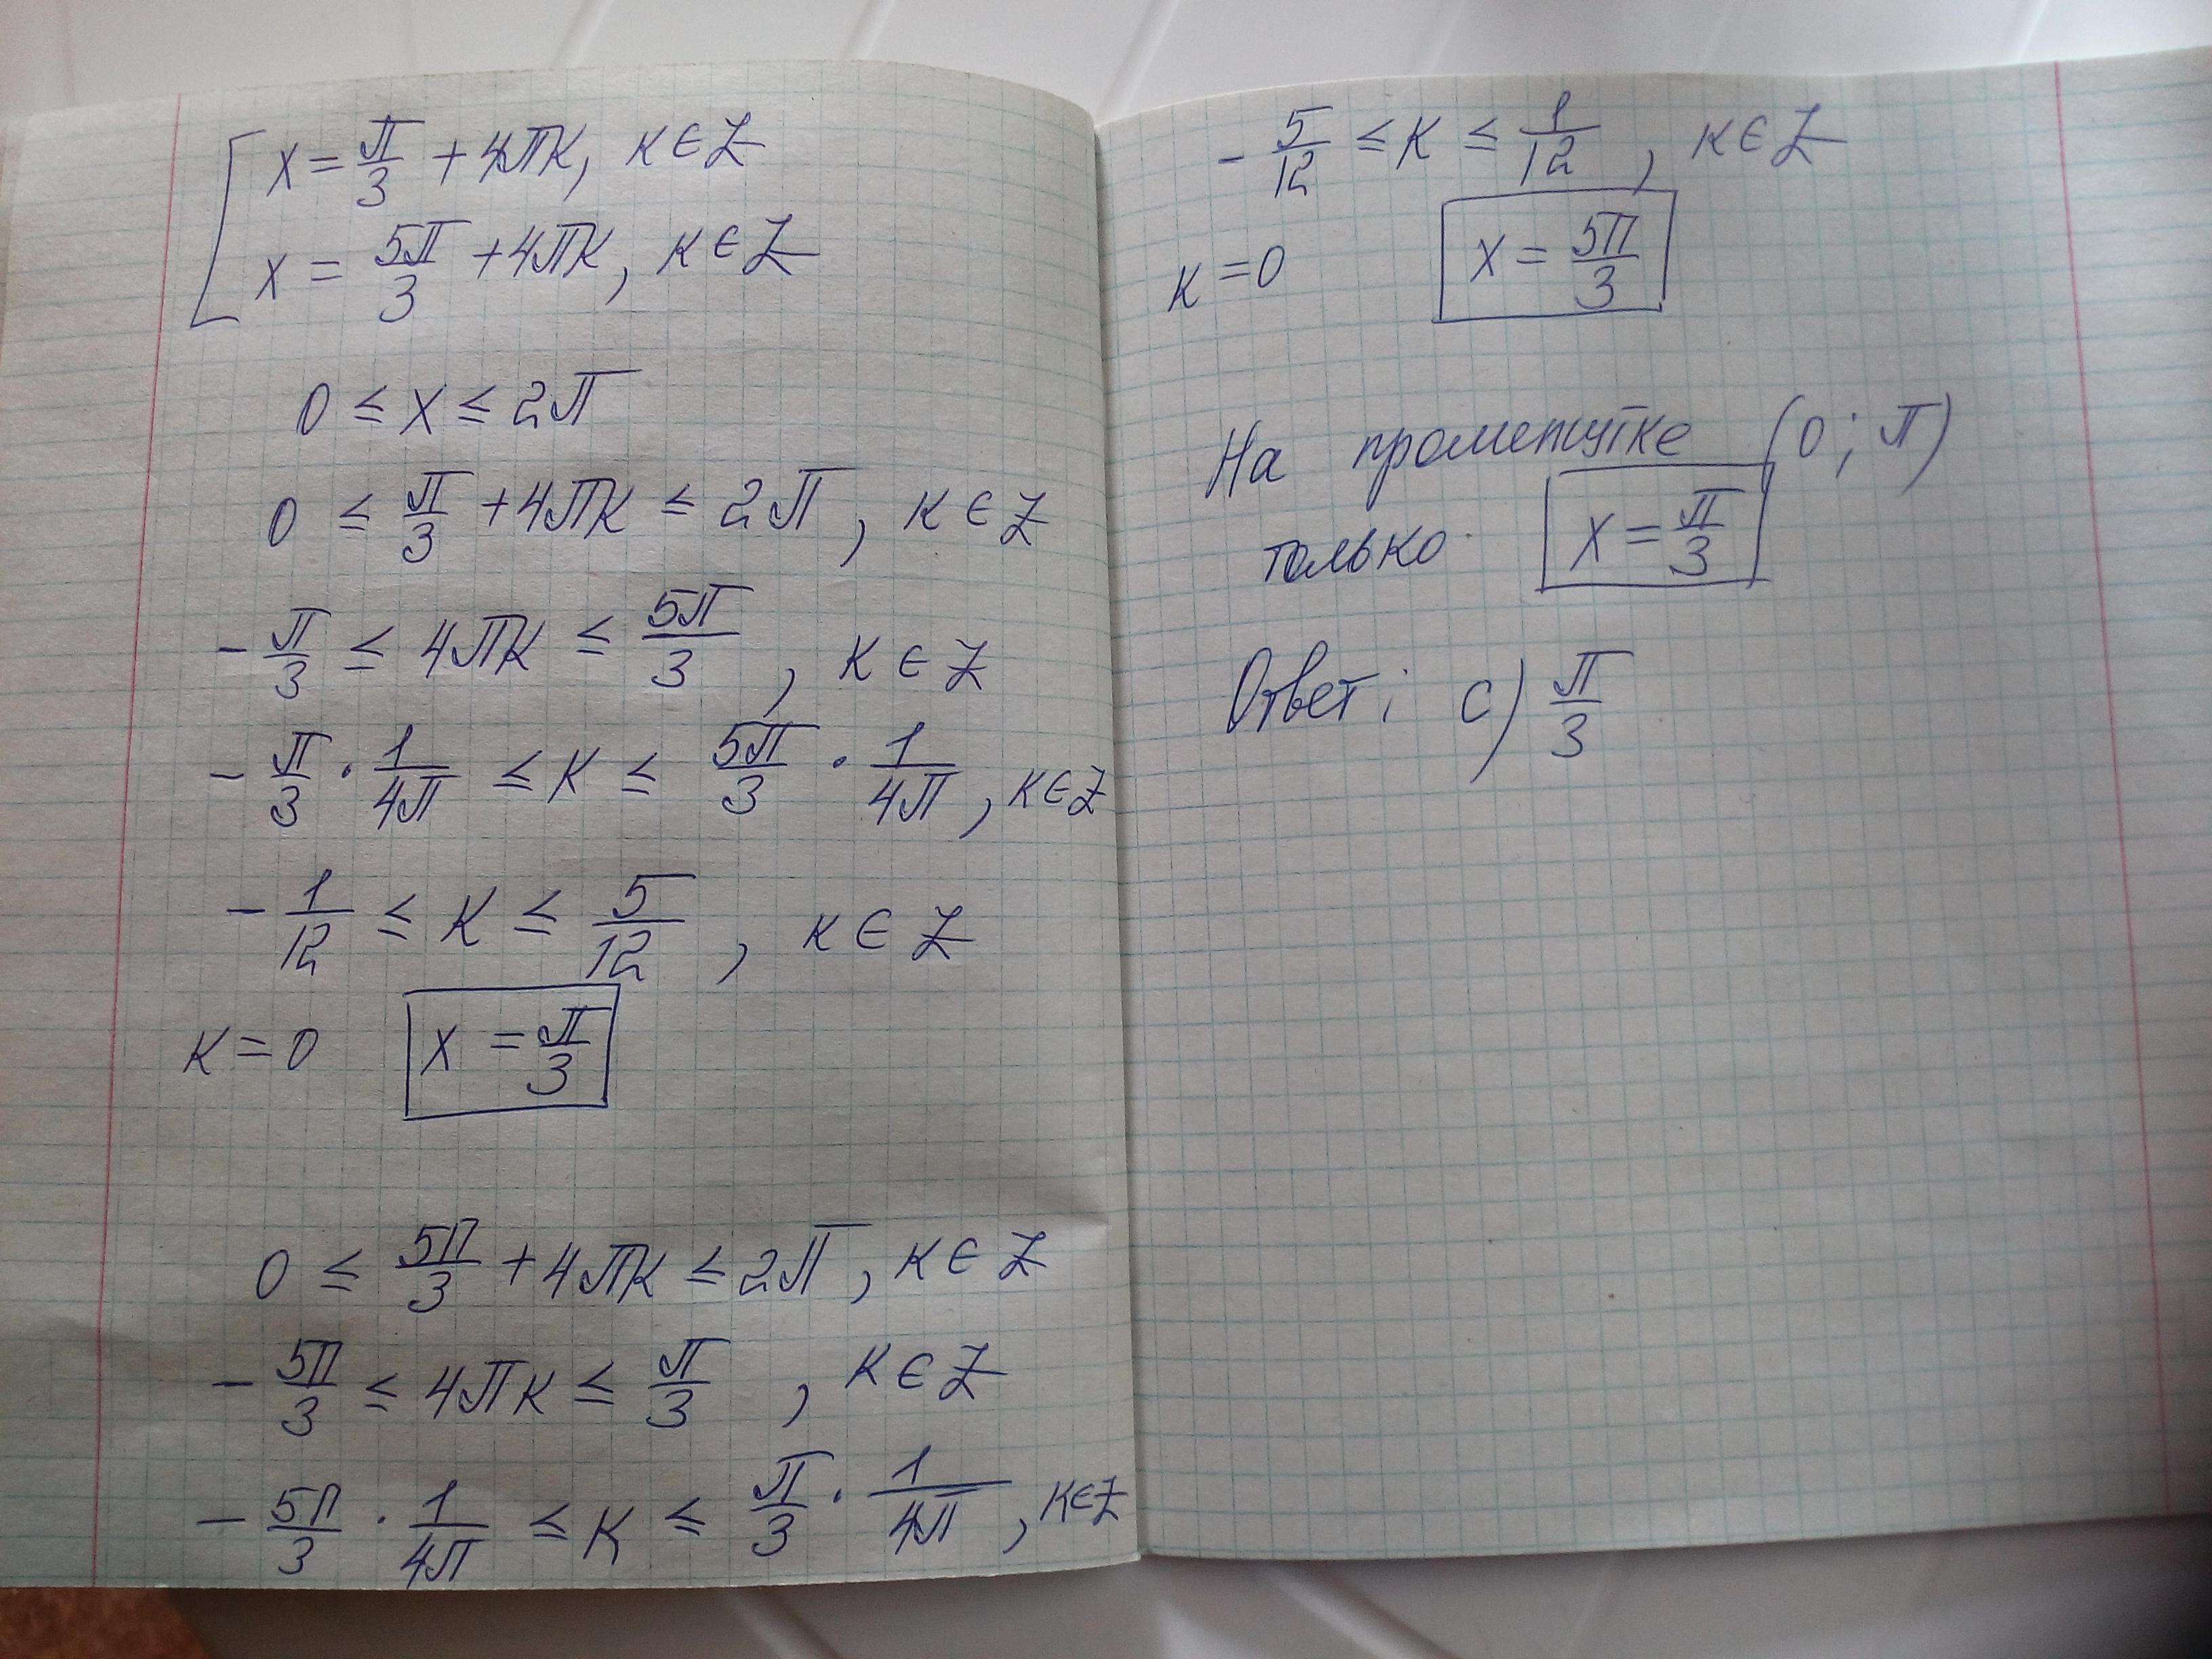 x = π/3 + 4πк, к ∈ Z
x = 5π/3 + 4πк, к ∈ Z
0 ≤ x ≤ 2π
0 ≤ π/3 + 4πк ≤ 2π, к ∈ Z
- π/3 ≤ 4πк ≤ 5π/3, к ∈ Z
- π/3 · 1/4π ≤ к ≤ 5π/3 · 1/4π, к ∈ Z
- 1/12 ≤ к ≤ 5/12, к ∈ Z
к = 0 x = π/3
0 ≤ 5π/3 + 4πк ≤ 2π, к ∈ Z
- 5π/3 ≤ 4πк ≤ π/3, к ∈ Z
- 5π/3 · 1/4π ≤ к ≤ π/3 · 1/4π, к ∈ Z
- 5/12 ≤ к ≤ 1/12, к ∈ Z
к = 0 x = 5π/3
На промежутке (0; π)
только x = π/3
Ответ: с) π/3